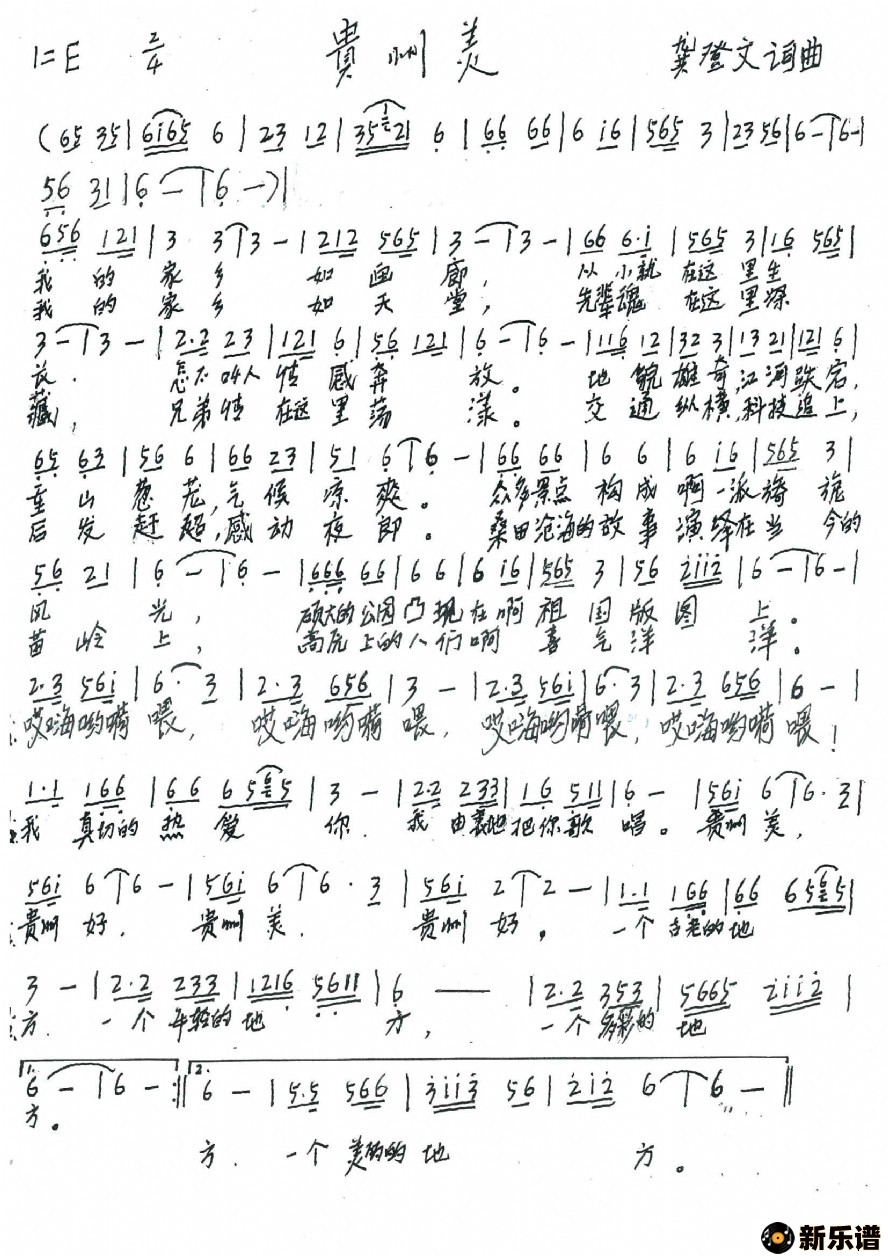 1=E 2/4 貴州美 龚登文词曲
(65 35|6i65 6|23 12|35 21 6|66 66|6 i6|565 3|23 56|6-|6-|
56 31|6-|6-)|
656 121|3 3|3-|1212 565|3-|3-|66 6·i|565 3|16 565|
我的家乡如画廊,从小就在这里生
我的家乡如天堂,先辈魂在这里深
3-|3-|2·2 23|121 6|56 121|6-|6-|116 12|32 3|13 21|121 6|
长.怎不叫人情感奔放。地貌雄奇,江河跌宕,
藏,兄弟情在这里荡漾。交通纵横,科技追上,
65 63|56 6|66 23|51 6|6-|66 66|6 6|6 i6|565 3|
重山葱茏,气候凉爽。众多景点构成啊一派旖旎
后发赶超,感动夜郎。桑田沧海的故事演绎在当今的
56 21|6-|6-|666 66|6 6|6 i6|565 3|56 2ii2|6-|6-|
风光,硕大的公园凸现在啊祖国版图上。
苗岭上,高原上的人们啊喜气洋洋。
2·3 56i|6·3|2·3 656|3-|2·3 56i|6·3|2·3 656|6-|
哎嗨哟嗬喂,哎嗨哟嗬喂,哎嗨哟嗬喂,哎嗨哟嗬喂!
1·1 166|66 6565|3-|2·2 233|16 511|6-|56i 6|6·3|
我真切的热爱你.我由衷地把你歌唱。贵州美,
56i 6|6-|56i 6|6·3|56i 2|2-|1·1 166|66 6565|
贵州好.贵州美.贵州好。一个古老的地
3-|2·2 233|1216 5611|6——|2·2 353|5665 2ii2|
方.一个年轻的地方,一个多彩的地
1. 6-|6-:|| 2. 6-|5·5 566|3ii3 56|2i2 6|6-||
方。
方.一个美的的地方。
新乐谱